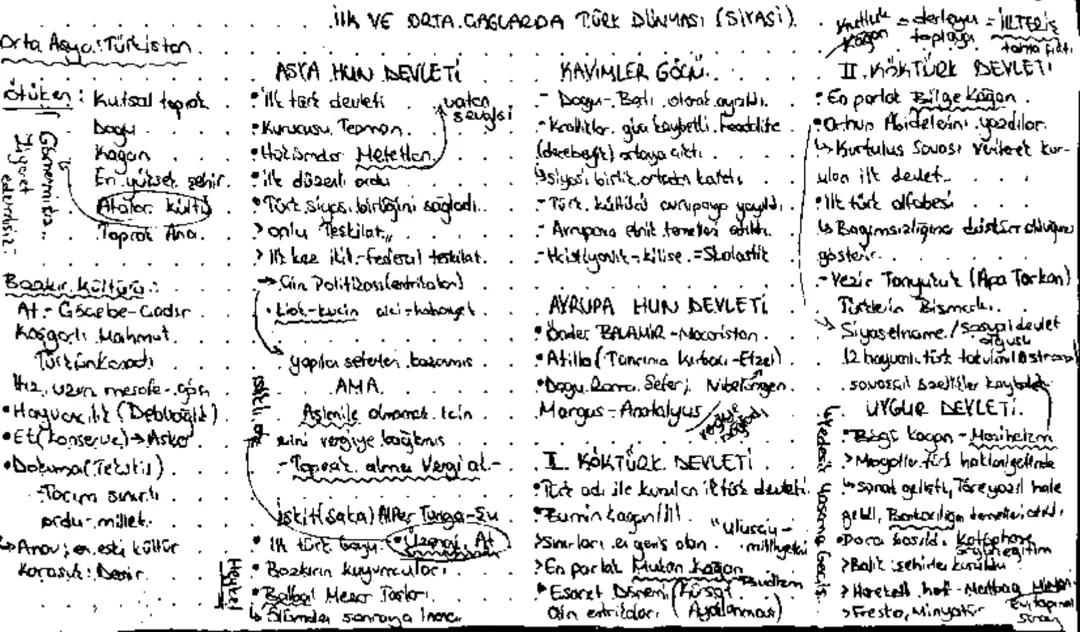 İLK VE ORTA ÇAĞLARDA TÜRK DÜNYASI (SİYASİ)
Orta Asya: Türkistan
Ötüken: Kutsal toprak
Doğu
Kağan
En yüksek şehir
Atalar kültü
Toprak Ana
Ziyaret
Bozkır kültürü:
At - Göçebe - Çadır
Kaşgarlı Mahmut
Türkün kanadı
Hız, uzun mesafe - göç
• Hayvancılık
• Et (konserve) → Asker
• Dokuma (Tekstil)
- Tarım sınırlı
ordu-millet
↳ Anav; en eski kültür
Karasuk: Demir
ASYA HUN DEVLETİ
• İlk türk devleti
vatan sevgisi
• Kurucusu Teoman
Mete Han
• ilk düzenli ordu
• Türk siyasi birliğini sağladı
> onlu Teşkilat
> İlk kez ikili-Federal teşkilat
→ Çin Politikası (entrikaları)
yapılan seferleri kazanmış
AMA
Asimile olmamak için
Çini vergiye bağlamış
- Toprak alma Vergi al -
İskit (Saka) Alper Tunga - Şu
• İlk türk boyu • Üzengi, At
• Bozkırın kuyumcuları
• Balbal Mezar Taşları
Heykel
↳ Ölümden sonraya inanç
KAVİMLER GÖÇÜ
- Doğu - Batı olarak ayrıldı
- Krallıklar güç kaybetti, feodalite
(derebeylik) ortaya çıktı
↳ siyasi birlik ortadan kalktı
- Türk kültürü avrupaya yayıldı
- Avrupanın etnik temelleri atıldı
- Hristiyanlık - kilise = Skolastik
AVRUPA HUN DEVLETİ
• Önder BALAMİR - Macaristan
• Atilla (Tanrının kırbacı - Etzel)
• Doğu Roma Seferi Nibelungen
Margus - Anatolyus
vergiye bağladı
I. KÖKTÜRK DEVLETİ
• Türk adı ile kurulan ilk türk devleti
• Bumin kağan
"Ulusçu - milliyetçi
> sınırları en geniş olan
> En parlak Mukan Kağan
Budizm
• Esaret Dönemi (Kürşat
Çin entrikaları Ayaklanması)
Kutluk Kağan = derleyen toplayan = İLTERİŞ
II. KÖKTÜRK DEVLETİ
• En parlak Bilge Kağan
• Orhun Abidelerini yazdılar
↳ Kurtuluş Savaşı vererek kur-
ulan ilk devlet
• ilk türk alfabesi
↳ Bağımsızlığına düşkün olduğunu
gösterir
- Vezir Tonyukuk (Apa Tarkan)
Türklerin Bismarkı
Siyasetname / sosyal devlet
12 hayvanlı türk takvimi
savaşçı özellikler kaybetti
UYGUR DEVLETİ
• Bögü kağan - Maniheizm
Yerleşik Yaşama Geçiş
↳ sanat gelişti, Töre yazılı hale
geldi, Bankacılığın temelleri atıldı
• Para basıldı
> Balık şehirler kuruldu
> Hareketli harf - Matbaa
> Fresko, Minyatür